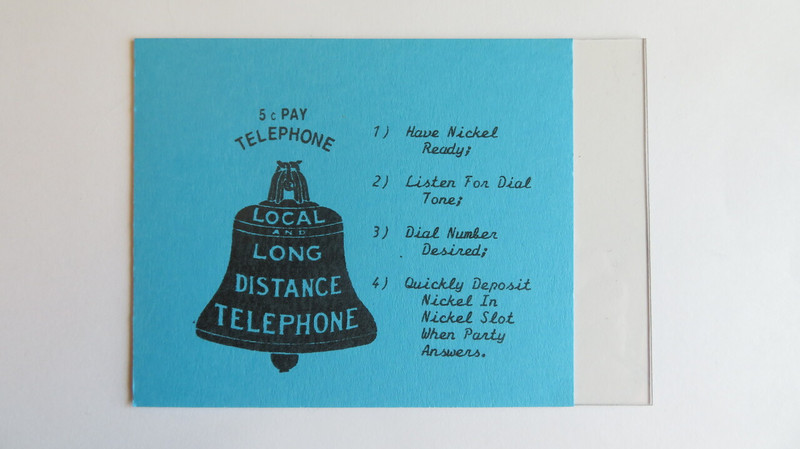 5¢ PAY
TELEPHONE
LOCAL
AND
LONG
DISTANCE
TELEPHONE
1) Have Nickel
Ready;
2) Listen For Dial
Tone;
3) Dial Number
Desired;
4) Quickly Deposit
Nickel In
Nickel Slot
When Party
Answers.